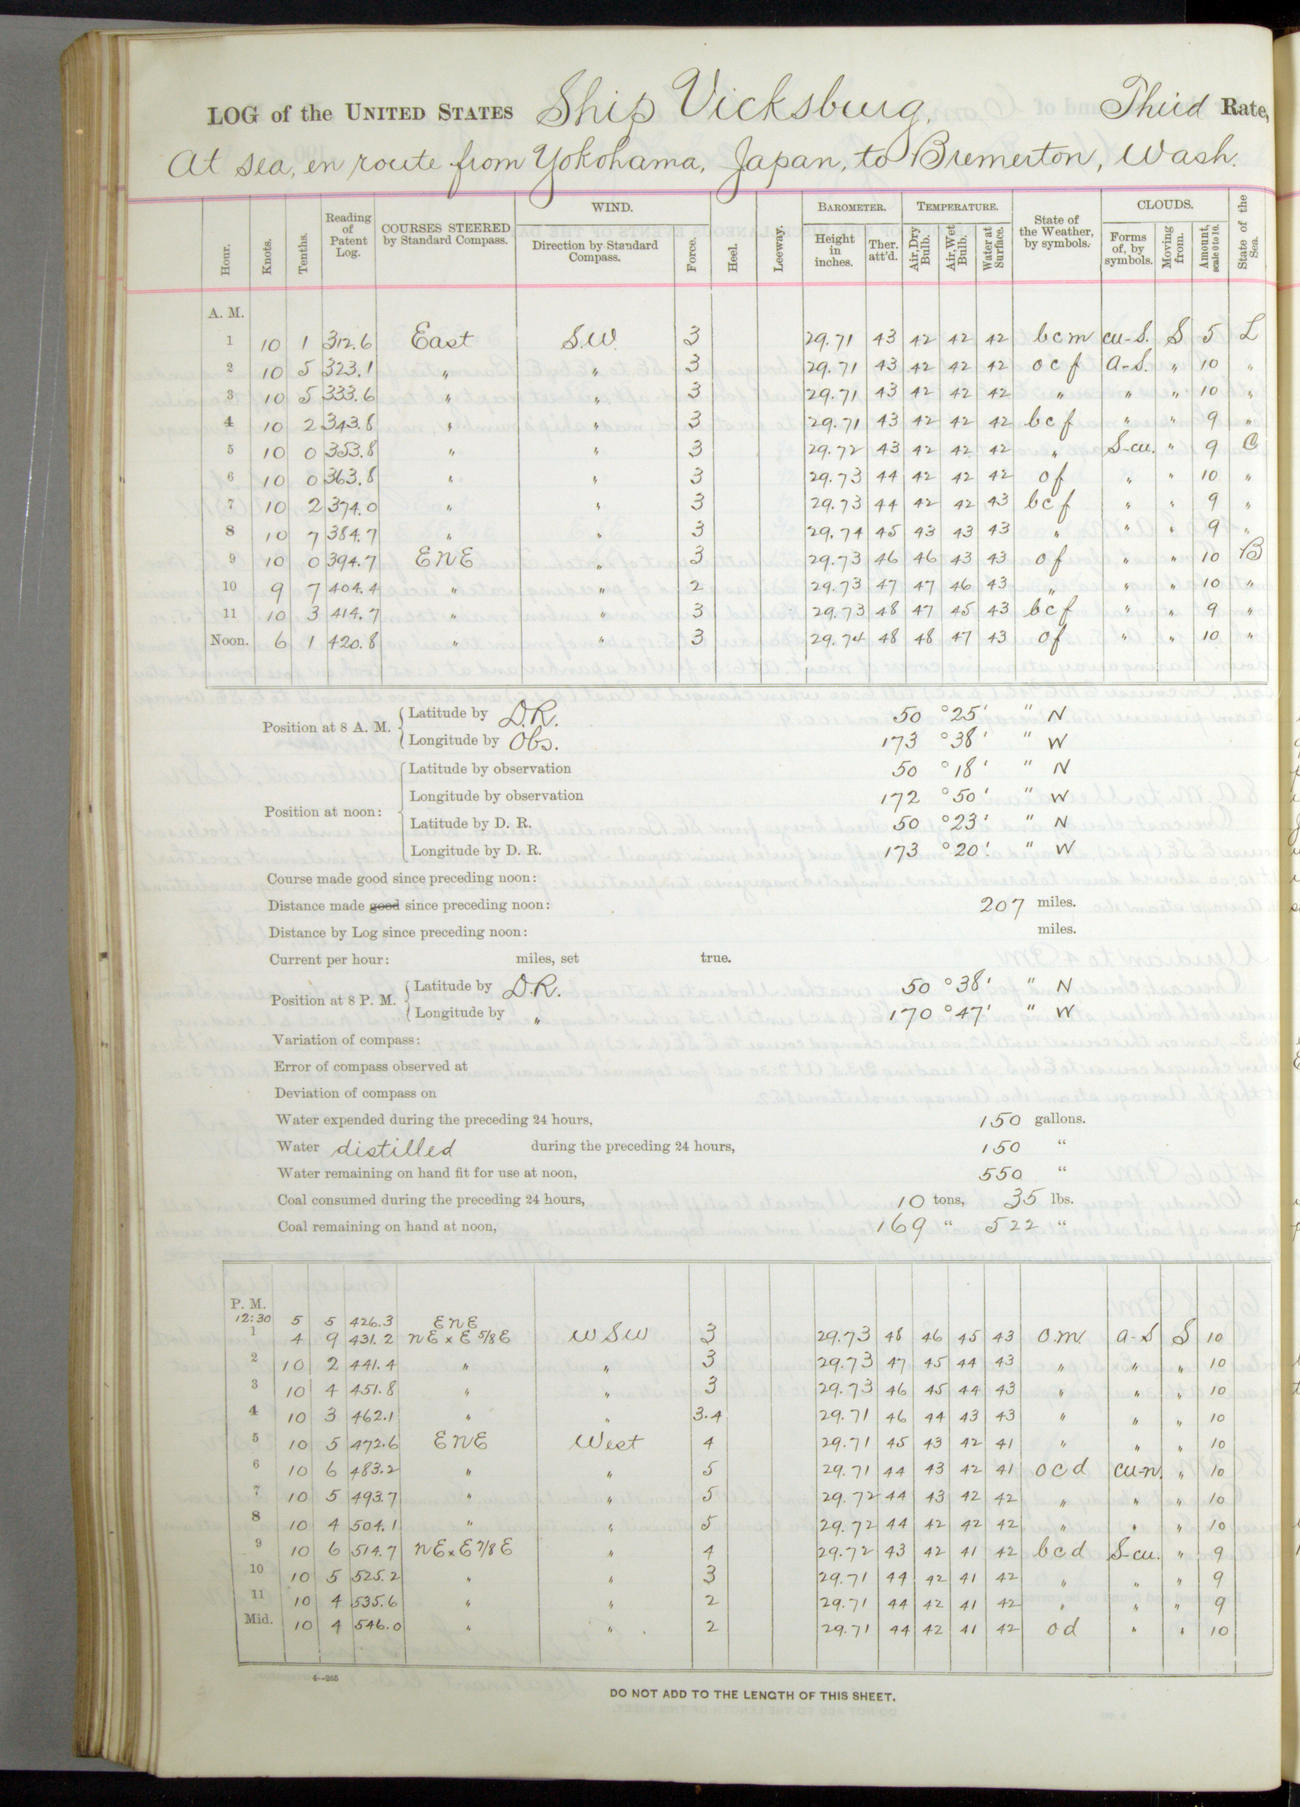 LOG of the UNITED STATES Ship Vicksburg, Third Rate,
At sea, en route from Yokohama, Japan, to Bremerton, Wash.
Hour. Knots. Tenths. Reading of Patent Log. COURSES STEERED by Standard Compass. WIND. Direction by Standard Compass. Force. Heel. Leeway. BAROMETER. Height in inches. Ther. att'd. TEMPERATURE. Air, Dry Bulb. Air, Wet Bulb. Water at Surface. State of the Weather, by symbols. CLOUDS. Forms of, by symbols. Moving from. Amount, scale 0 to 10. State of the Sea.
A. M.
1 10 1 312.6 East S.W. 3 29.71 43 42 42 42 bcm cu-S. S 5 L
2 10 5 323.1 " " 3 29.71 43 42 42 42 ocf a-S. " 10 "
3 10 5 333.6 " " 3 29.71 43 42 42 42 " " " 10 "
4 10 2 343.8 " " 3 29.71 43 42 42 42 bcf " " 9 "
5 10 0 353.8 " " 3 29.72 43 42 42 42 " S-cu. " 9 C
6 10 0 363.8 " " 3 29.73 44 42 42 42 of " " 10 "
7 10 2 374.0 " " 3 29.73 44 42 42 43 bcf " " 9 "
8 10 7 384.7 " " 3 29.74 45 43 43 43 " " " 9 "
9 10 0 394.7 ENE " 3 29.73 46 46 43 43 of " " 10 B
10 9 7 404.4 " " 2 29.73 47 47 46 43 " " " 10 "
11 10 3 414.7 " " 3 29.73 48 47 45 43 bcf " " 9 "
Noon. 6 1 420.8 " " 3 29.74 48 48 47 43 of " " 10 "
Position at 8 A. M. Latitude by D.R. 50 ° 25' " N
Longitude by Obs. 173 ° 38' " W
Position at noon: Latitude by observation 50 ° 18' " N
Longitude by observation 172 ° 50' " W
Latitude by D. R. 50 ° 23' " N
Longitude by D. R. 173 ° 20'. " W
Course made good since preceding noon:
Distance made good since preceding noon: 207 miles.
Distance by Log since preceding noon: miles.
Current per hour: miles, set true.
Position at 8 P. M. Latitude by D.R. 50 ° 38' " N
Longitude by " 170 ° 47' " W
Variation of compass:
Error of compass observed at
Deviation of compass on
Water expended during the preceding 24 hours, 150 gallons.
Water distilled during the preceding 24 hours, 150 "
Water remaining on hand fit for use at noon, 550 "
Coal consumed during the preceding 24 hours, 10 tons, 35 lbs.
Coal remaining on hand at noon, 169 " 522 "
P. M.
12:30 5 5 426.3 ENE
1 4 9 431.2 NE x E 5/8 E WSW 3 29.73 48 46 45 43 o.m. a-S S 10
2 10 2 441.4 " " 3 29.73 47 45 44 43 " " " 10
3 10 4 451.8 " " 3 29.73 46 45 44 43 " " " 10
4 10 3 462.1 " " 3.4 29.71 46 44 43 43 " " " 10
5 10 5 472.6 ENE West 4 29.71 45 43 42 41 " " " 10
6 10 6 483.2 " " 5 29.71 44 43 42 41 ocd cu-n. " 10
7 10 5 493.7 " " 5 29.72 44 43 42 42 " " " 10
8 10 4 504.1 " " 5 29.72 44 42 42 42 " " " 10
9 10 6 514.7 NE x E 7/8 E " 4 29.72 43 42 41 42 bcd S-cu. " 9
10 10 5 525.2 " " 3 29.71 44 42 41 42 " " " 9
11 10 4 535.6 " " 2 29.71 44 42 41 42 " " " 9
Mid. 10 4 546.0 " " 2 29.71 44 42 41 42 od " " 10
4—265
DO NOT ADD TO THE LENGTH OF THIS SHEET.